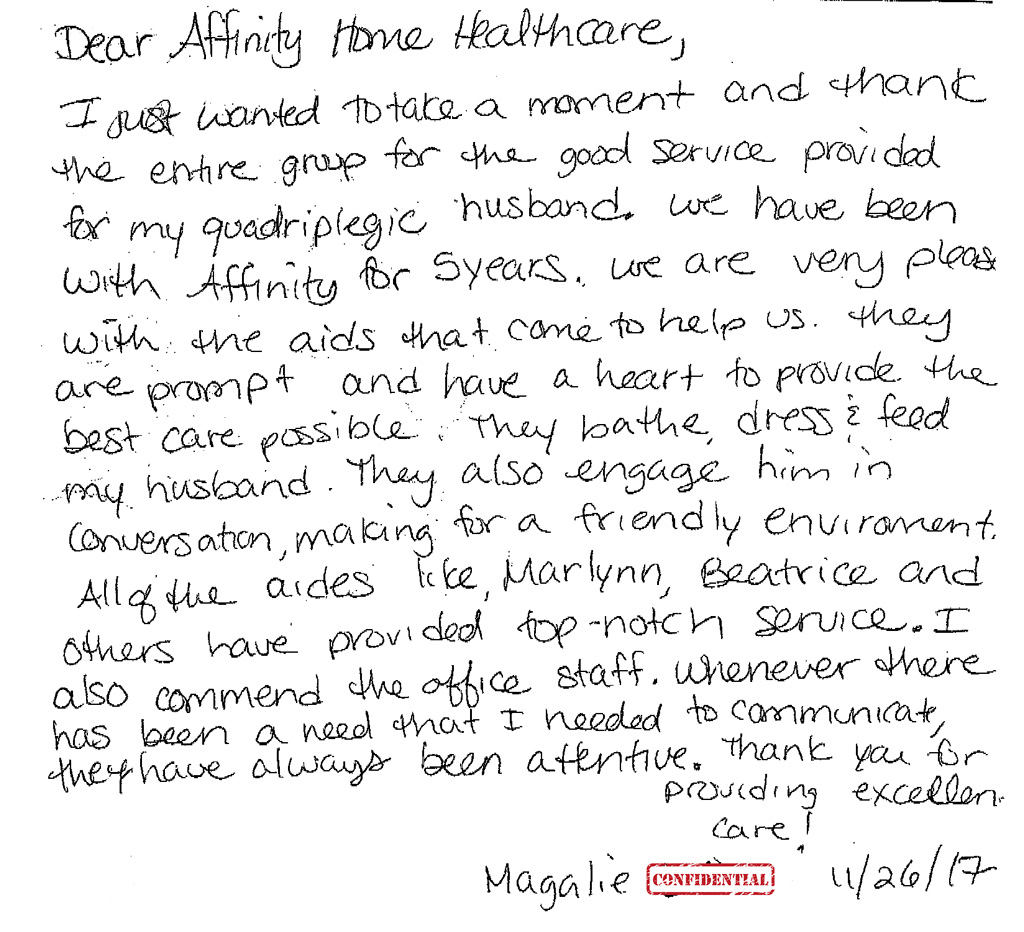 Dear Affinity Home Healthcare,
I just wanted to take a moment and thank
the entire group for the good service provided
for my quadriplegic husband. we have been
with Affinity for 5years. we are very pleas
with the aids that come to help us. they
are prompt and have a heart to provide the
best care possible. They bathe, dress & feed
my husband. They also engage him in
conversation, making for a friendly enviroment.
All of the aides like, Marlynn, Beatrice and
others have provided top-notch service. I
also commend the office staff. whenever there
has been a need that I needed to communicate,
they have always been attentive. Thank you for
providing excellen
care!
Magalie CONFIDENTIAL 11/26/17